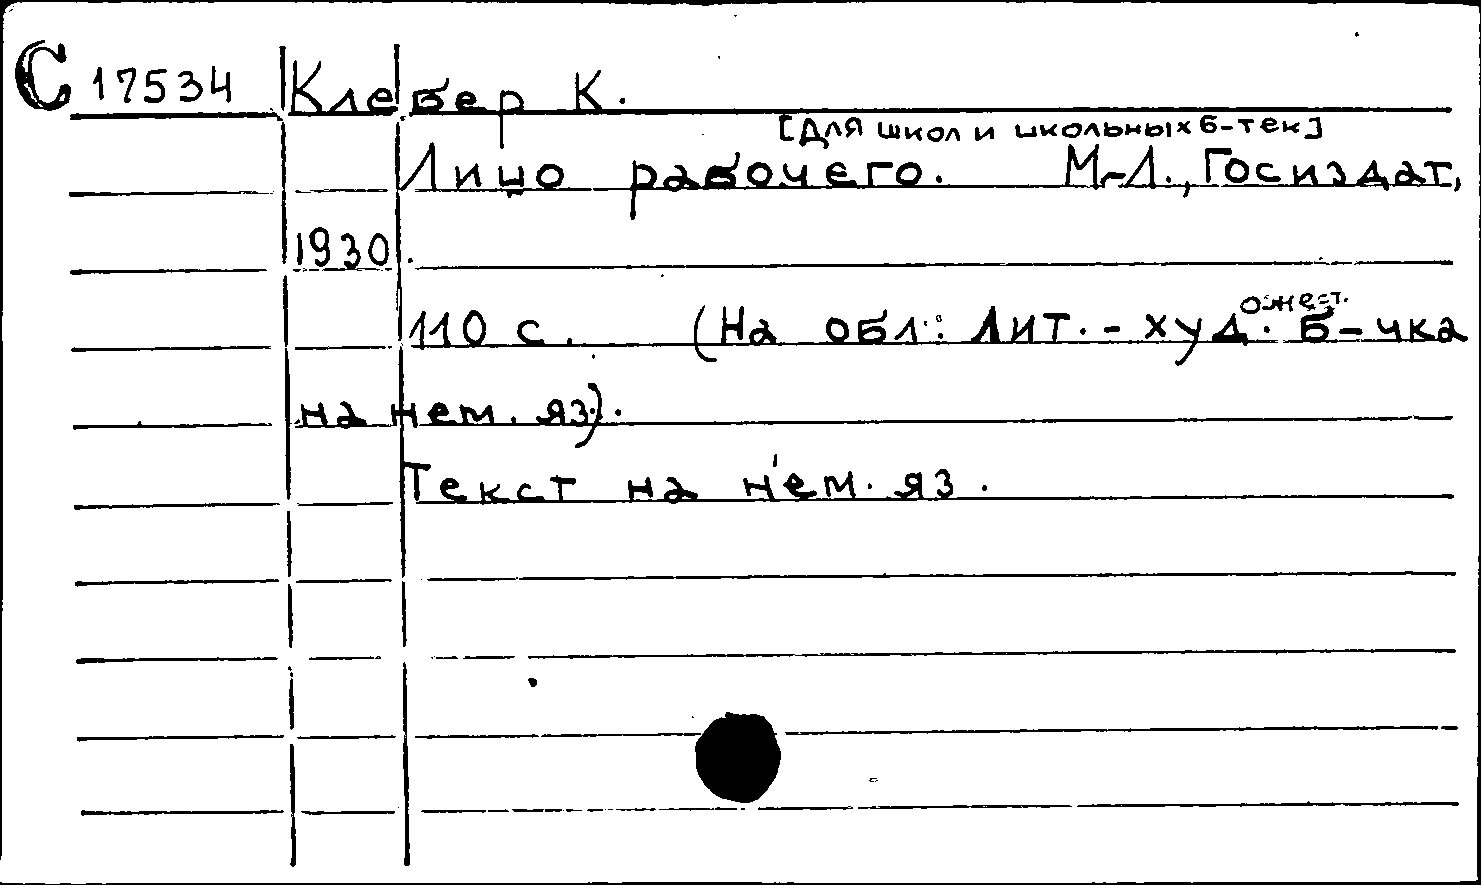 С 17534 Клебер К.
[Для школ и школьных б-тек]
Лицо рабочего. М-Л., Госиздат,
1930.
110 с. (На обл: Лит.-худ. ожест. б-чка
на нем. яз).
Текст на нем. яз.